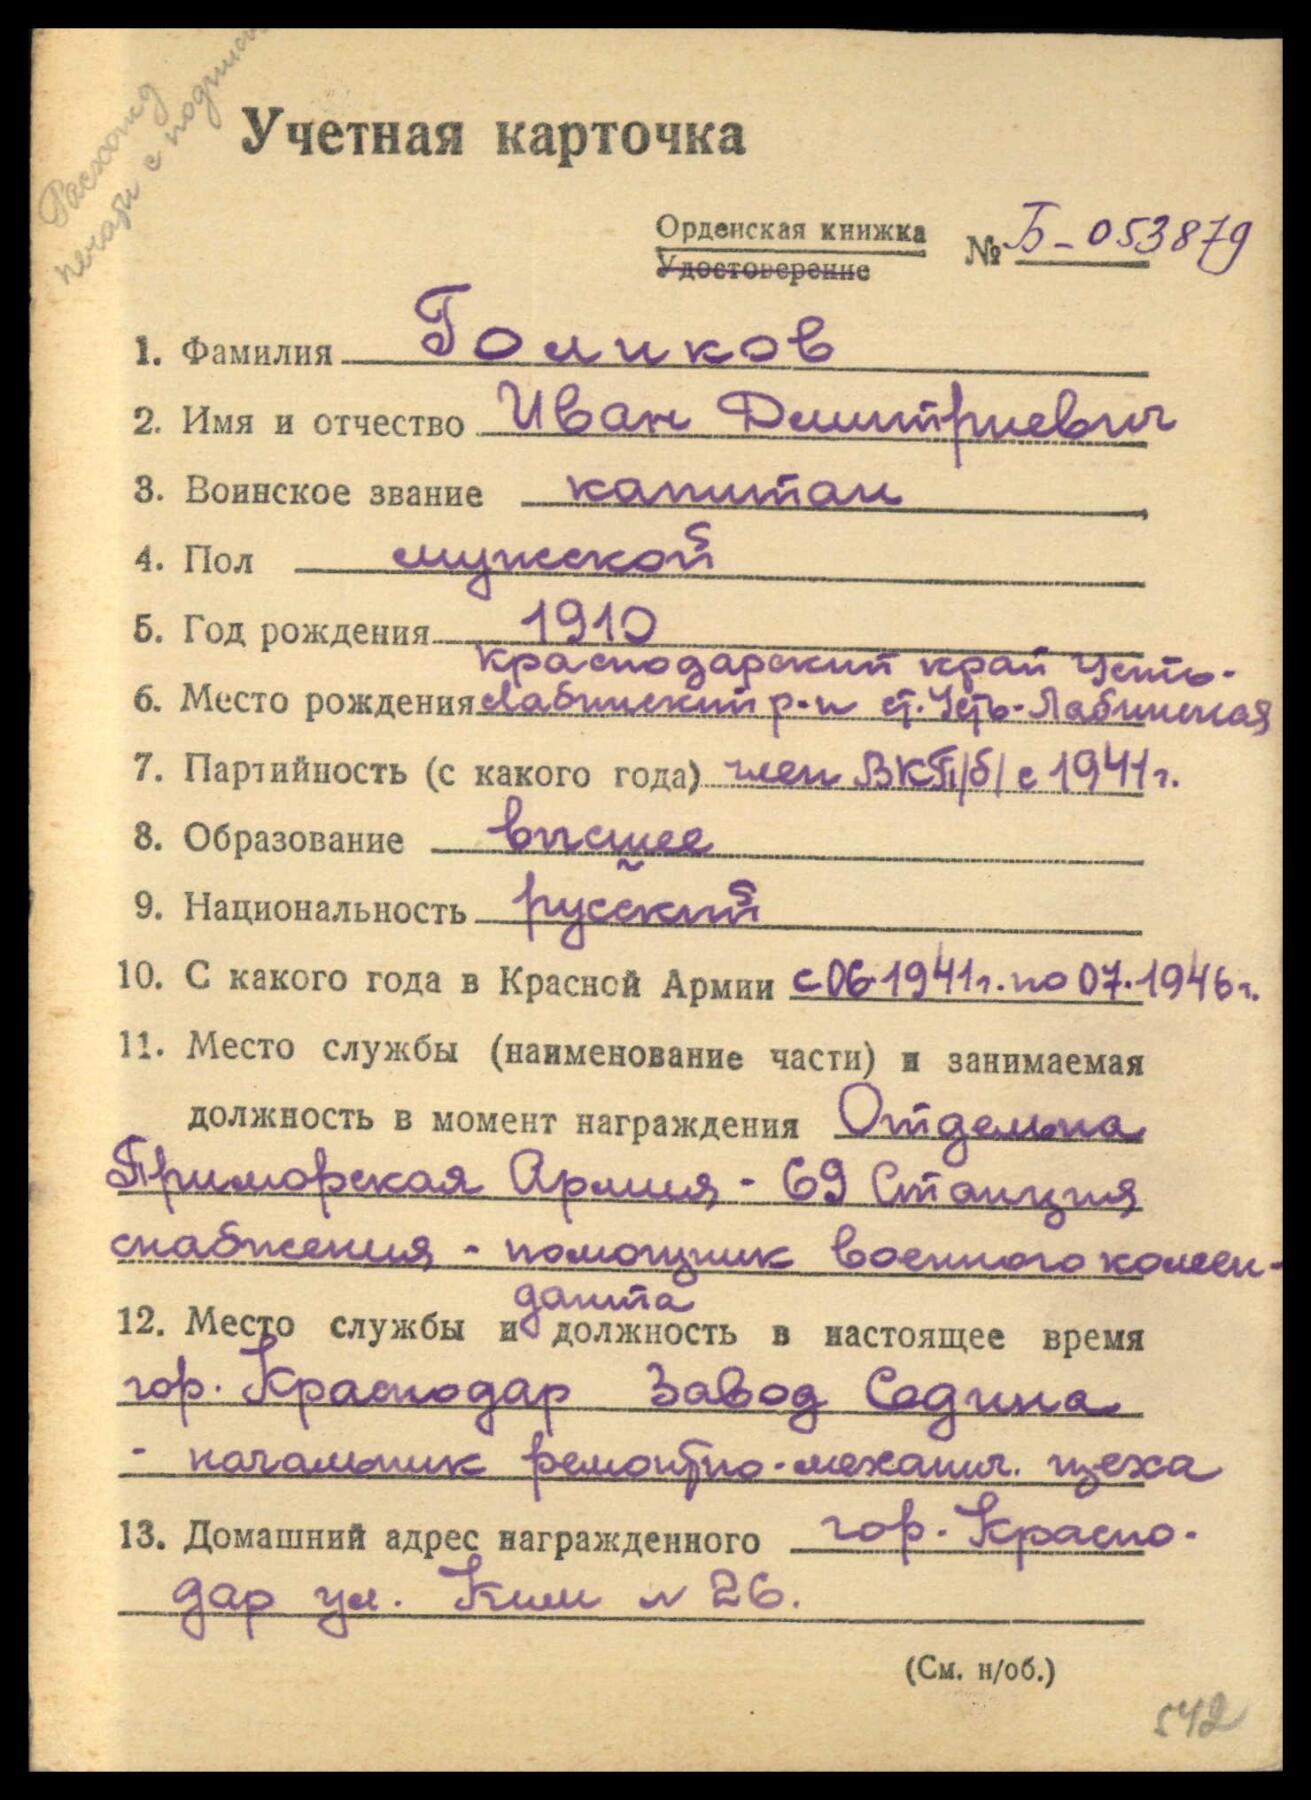 Расхожд
печати с подписью
Учетная карточка
Орденская книжка
Удостоверение
№ Б-053879
1. Фамилия Голиков
2. Имя и отчество Иван Дмитриевич
3. Воинское звание капитан
4. Пол мужской
5. Год рождения 1910
Краснодарский край Усть-
6. Место рождения Лабинский р-н ст. Усть-Лабинская
7. Партийность (с какого года) член ВКП/б/ с 1941 г.
8. Образование высшее
9. Национальность русский
10. С какого года в Красной Армии с 06.1941 г. по 07.1946 г.
11. Место службы (наименование части) и занимаемая
должность в момент награждения Отдельна
Приморская Армия - 69 Станция
снабжения - помощник военного комен-
данта
12. Место службы и должность в настоящее время
гор. Краснодар Завод Седина
- начальник ремонтно-механич. цеха
13. Домашний адрес награжденного гор. Красно-
дар ул. Ким N 26.
(См. н/об.)
542